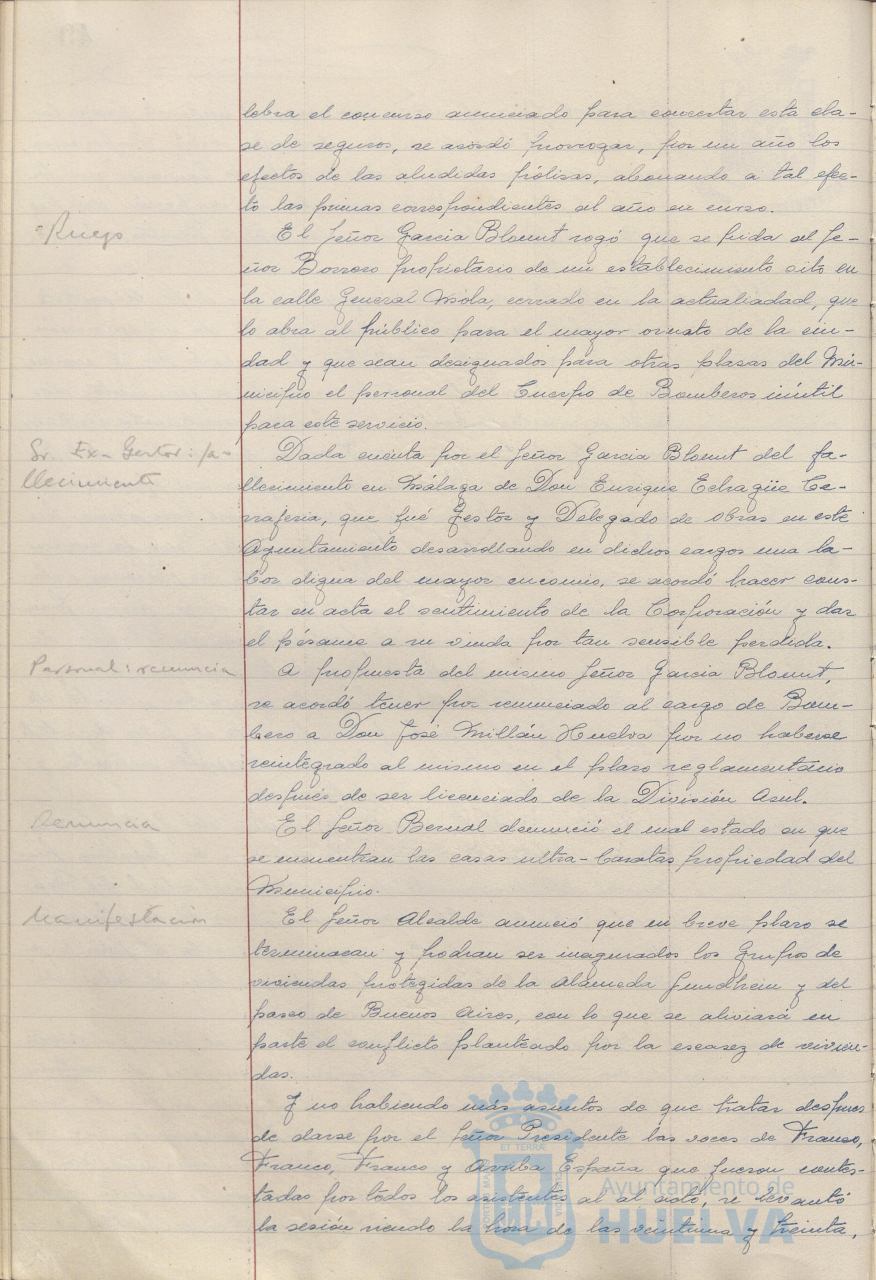 lebra el concurso anunciado para concertar esta cla-
se de seguros, se acordó prorrogar, por un año los
efectos de las aludidas pólisas, abonando a tal efec-
to las primas correspondientes al año en curso.
Ruego
El Señor Garcia Blomnt rogó que se pida al Se-
ñor Borrero propietario de un establecimiento sito en
la calle General Mola, cerrado en la actualiadad, que
lo abra al público para el mayor ornato de la ciu-
dad y que sean designados para otras plasas del Mu-
nicipio el personal del Cuerpo de Bomberos inútil
para este servicio.
Sr. Ex-Gestor: fa-
llecimiento
Dada cuenta por el Señor Garcia Blomnt del fa-
llecimiento en Málaga de Don Enrique Echagüe Ce-
rraferia, que fué Gestor y Delegado de obras en este
Ayuntamiento desarrollando en dichos cargos una la-
bor digna del mayor encomio, se acordó hacer cons-
tar en acta el sentimiento de la Corporación y dar
el pésame a su viuda por tan sensible perdida.
Personal: renuncia
A propuesta del mismo Señor Garcia Blomnt,
se acordó tener por renunciado al cargo de Bom-
bero a Don José Millán Huelva por no haberse
reintegrado al mismo en el plaso reglamentario
después de ser licenciado de la División Asul.
Denuncia
El Señor Bernal denunció el mal estado en que
se encuentran las casas ultra-baratas propiedad del
Municipio.
Manifestación
El Señor Alcalde anunció que en breve plaso se
terminacan y podran ser inagurados los Grupos de
viviendas protegidas de la Alameda Sundhein y del
paseo de Buenos Aires, con lo que se aliviará en
parte el conflicto planteado por la escasez de vivien-
das.
Y no habiendo más asuntos de que tratar despues
de darse por el Señor Presidente las voces de Franco,
Franco, Franco y Arriba España que fueron contes-
tadas por todos los asistentes al al acto, se levantó
la sesión siendo la hora de las veintiuna y treinta,
Ayuntamiento de
HUELVA